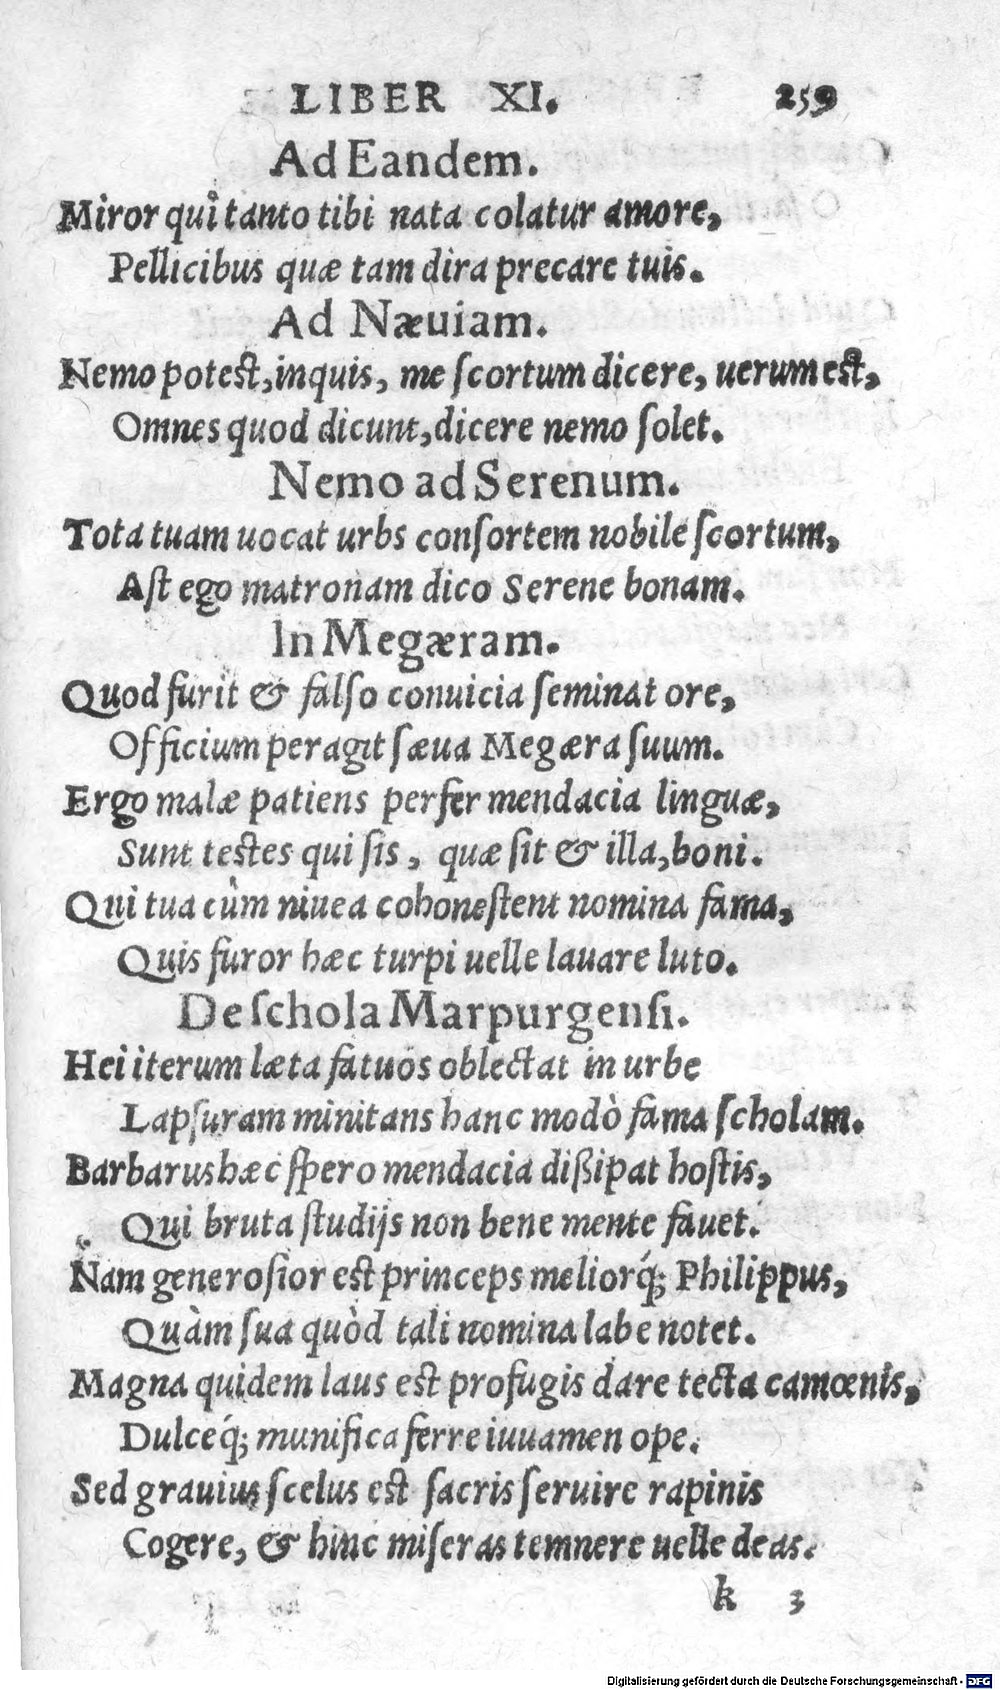 LIBER XI. 259
Ad Eandem.
Miror quî tanto tibi nata colatur amore,
Pellicibus quæ tam dira precare tuis.
Ad Næuiam.
Nemo potest, inquis, me ſcortum dicere, uerum est,
Omnes quod dicunt, dicere nemo ſolet.
Nemo ad Serenum.
Tota tuam uocat urbs conſortem nobile ſcortum,
Aſt ego matronam dico Serene bonam.
In Megæram.
Quod furit & falſo conuicia ſeminat ore,
Officium peragit ſæua Megæra ſuum.
Ergo malæ patiens perfer mendacia linguæ,
Sunt testes qui ſis, quæ ſit & illa, boni.
Qui tua cùm niuea cohoneſtent nomina fama,
Quis furor hæc turpi uelle lauare luto.
De ſchola Marpurgenſi.
Hei iterum læta fatuos oblectat in urbe
Lapſuram minitans hanc modò fama ſcholam.
Barbarus hæc ſpero mendacia dißipat hoſtis,
Qui bruta ſtudijs non bene mente fauet.
Nam generoſior est princeps meliorq́; Philippus,
Quàm ſua quòd tali nomina labe notet.
Magna quidem laus est profugis dare tecta camœnis,
Dulceq́; munifica ferre iuuamen ope.
Sed grauius ſcelus est ſacris ſeruire rapinis
Cogere, & hinc miſeras temnere uelle deas.
k 3
Digitalisierung gefördert durch die Deutsche Forschungsgemeinschaft - DFG